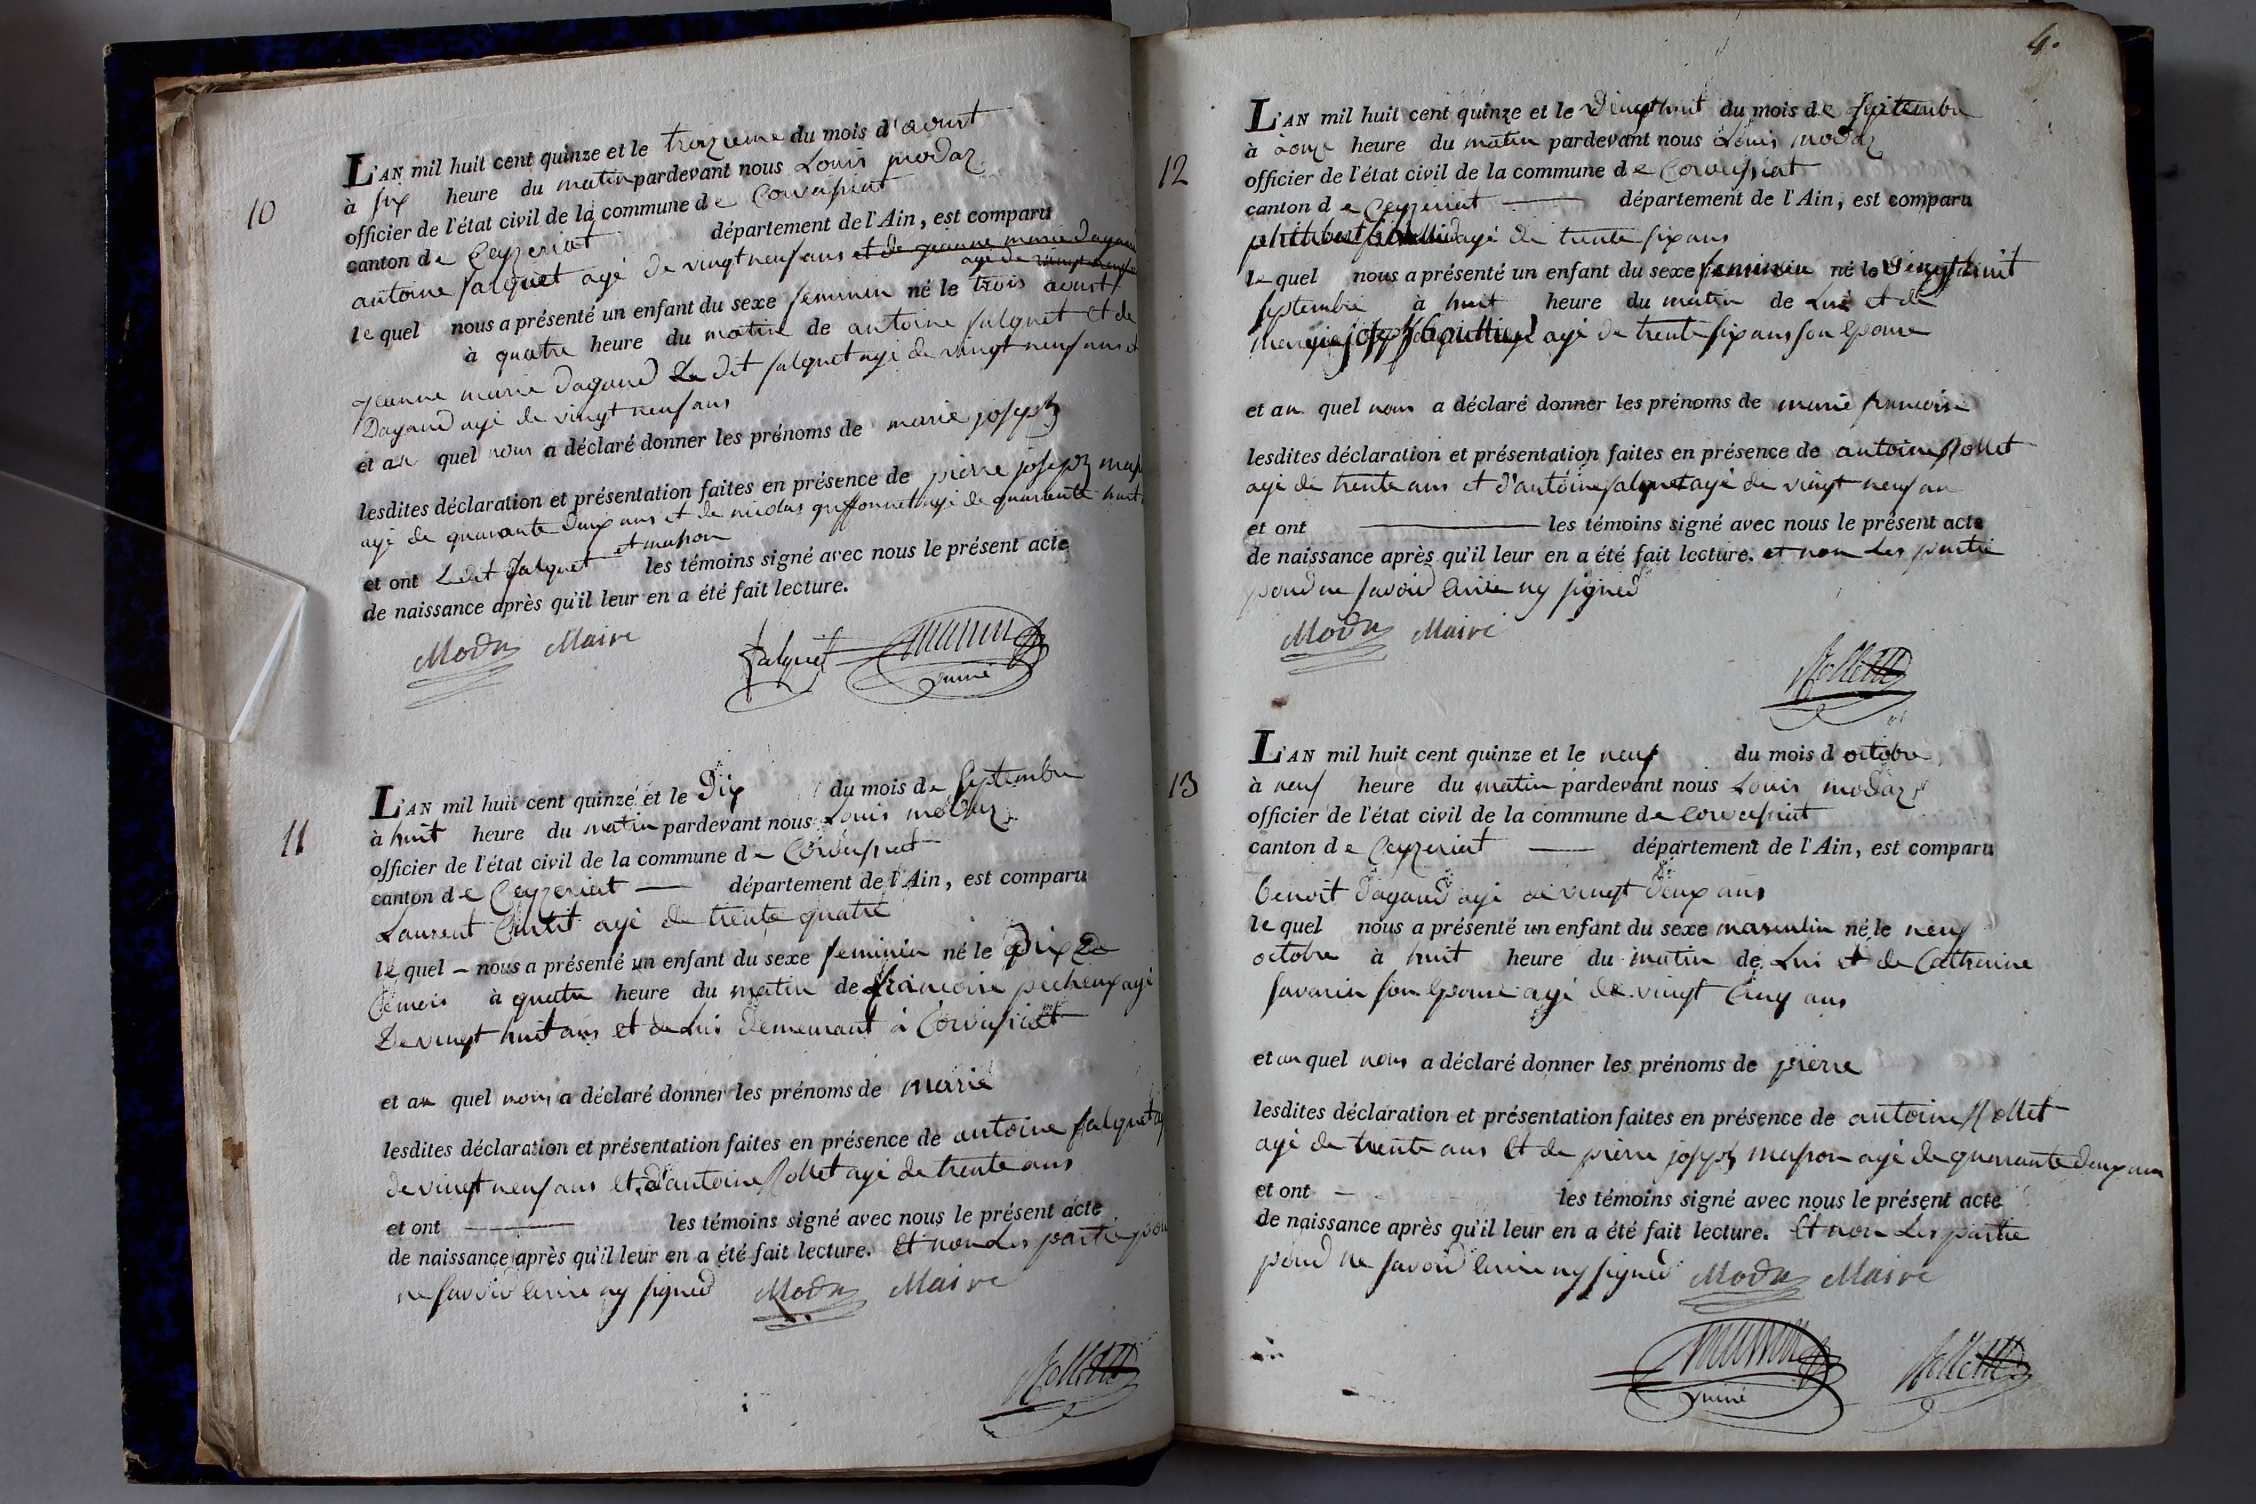 10
L'AN mil huit cent quinze et le treizieme du mois d'aoust
à six heure du matin pardevant nous Louis modaz
officier de l'état civil de la commune de Corveissiat
canton de Ceyzeriat département de l'Ain, est comparu
antoine salquet agé de vingt neuf ans et de jeanne marie dagand
agé de vingt neuf
le quel nous a présenté un enfant du sexe feminin né le trois aoust
à quatre heure du matin de antoine salquet et de
jeanne marie dagand Le dit salquet agé de vingt neuf ans et
Dagand agé de vingt neuf ans
et au quel nous a déclaré donner les prénoms de marie joseph
lesdites déclaration et présentation faites en présence de pierre joseph
agé de quarante deux ans et de nicolas griffonnet agé de quarante huit
et masson
et ont Ledit salquet les témoins signé avec nous le présent acte
de naissance après qu'il leur en a été fait lecture.
Modaz Maire Salquet masson
11
L'AN mil huit cent quinze et le Dix du mois de Septembre
à huit heure du matin pardevant nous Louis modaz
officier de l'état civil de la commune de Corveissiat
canton de Ceyzeriat département de l'Ain, est comparu
Laurent agé de trente quatre
le quel nous a présenté un enfant du sexe feminin né le Dix de
Ce mois à quatre heure du matin de francoise pecheux agé
De vingt huit ans et de Lui demeurant à Corveissiat
et au quel nous a déclaré donner les prénoms de marie
lesdites déclaration et présentation faites en présence de antoine salquet agé
de vingt neuf ans et d'antoine Rollet agé de trente ans
et ont les témoins signé avec nous le présent acte
de naissance après qu'il leur en a été fait lecture. Et non Les partie pour
ne savoir écrire ny signer Modaz Maire
Rollet
4.
12
L'AN mil huit cent quinze et le vingt huit du mois de septembre
à onze heure du matin pardevant nous Louis modaz
officier de l'état civil de la commune de Corveissiat
canton de Ceyzeriat département de l'Ain, est comparu
philibert agé de trente six ans
le quel nous a présenté un enfant du sexe feminin né le vingt huit
septembre à huit heure du matin de Lui et de
joseph agé de trente six ans son epouse
et au quel nous a déclaré donner les prénoms de marie francoise
lesdites déclaration et présentation faites en présence de antoine Rollet
agé de trente ans et d'antoine salquet agé de vingt neuf an
et ont les témoins signé avec nous le présent acte
de naissance après qu'il leur en a été fait lecture. et non Les partie
pour ne savoir écrire ny signer
Modaz Maire
Rollet
13
L'AN mil huit cent quinze et le neuf du mois d octobre
à neuf heure du matin pardevant nous Louis modaz
officier de l'état civil de la commune de Corveissiat
canton de Ceyzeriat département de l'Ain, est comparu
benoit Dagand agé de vingt deux ans
le quel nous a présenté un enfant du sexe masculin né le neuf
octobre à huit heure du matin de Lui et de Catherine
savarin son epouse agé de vingt Cinq ans
et au quel nous a déclaré donner les prénoms de pierre
lesdites déclaration et présentation faites en présence de antoine Rollet
agé de trente ans Et de pierre joseph masson agé de quarante deux ans
et ont les témoins signé avec nous le présent acte
de naissance après qu'il leur en a été fait lecture. Et non Les partie
pour ne savoir écrire ny signer Modaz Maire
masson Rollet